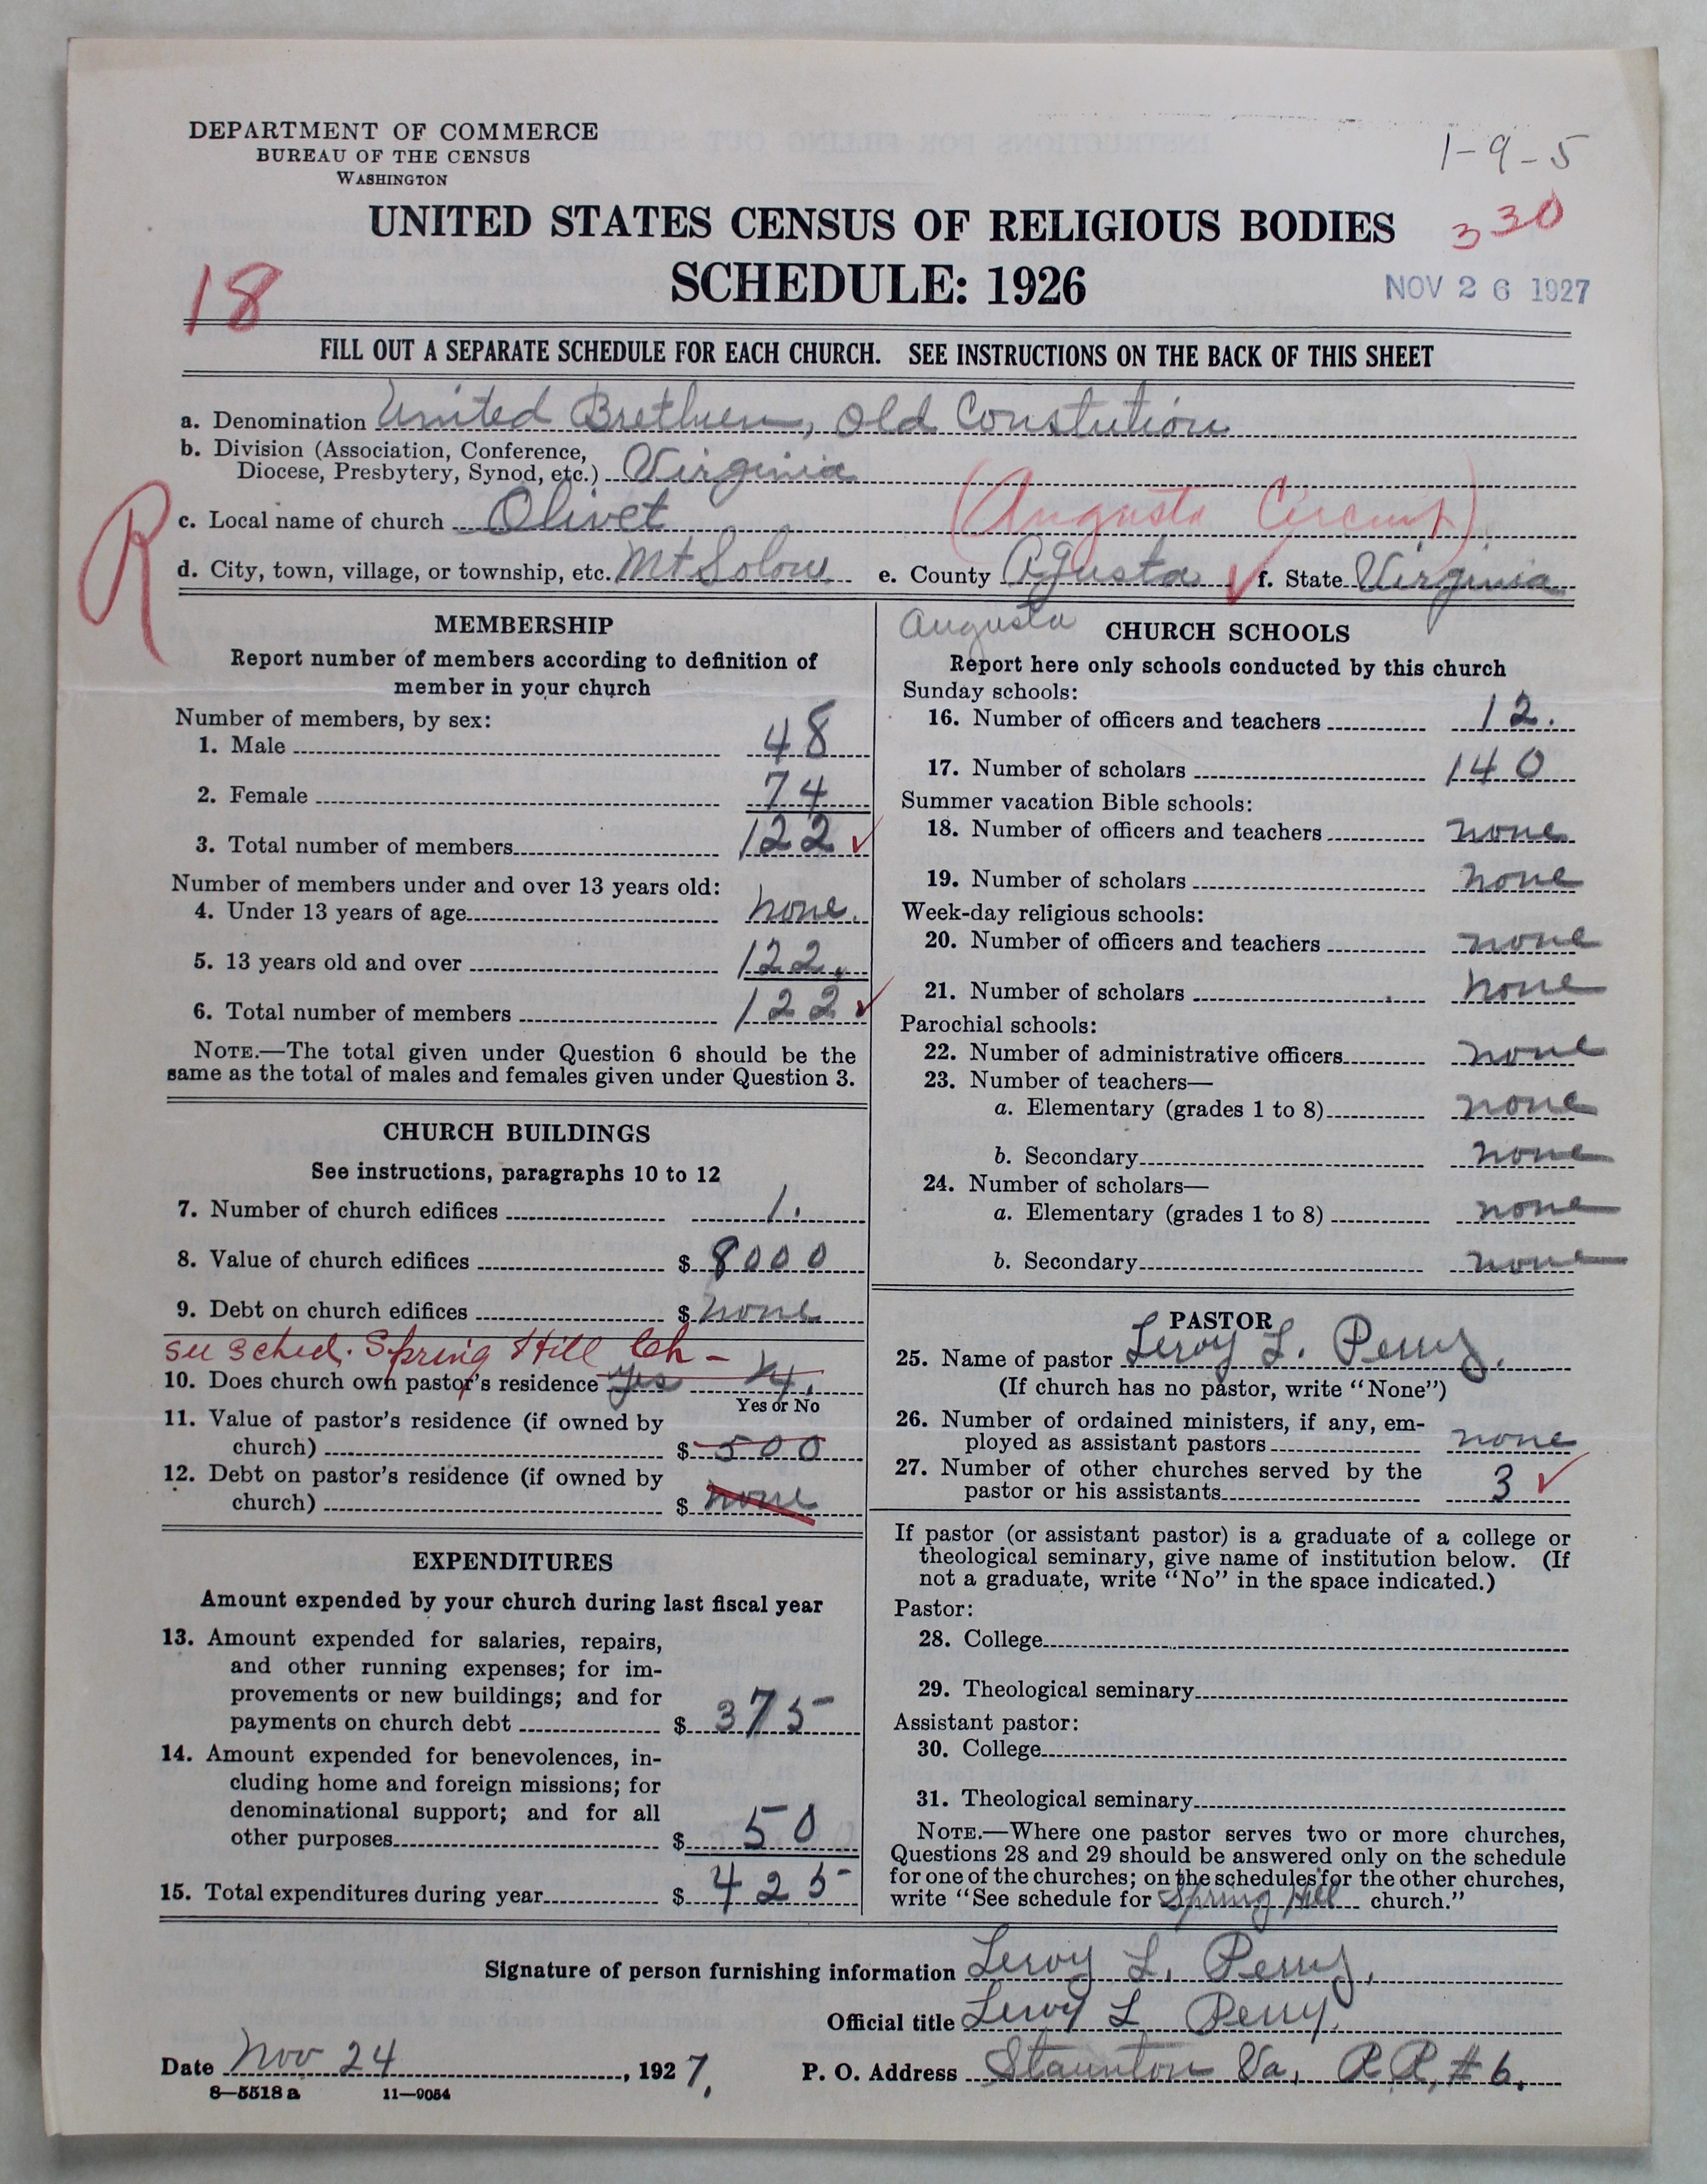 DEPARTMENT OF COMMERCE
BUREAU OF THE CENSUS
WASHINGTON
1-9-5
UNITED STATES CENSUS OF RELIGIOUS BODIES
330
SCHEDULE: 1926
18
NOV 26 1927
FILL OUT A SEPARATE SCHEDULE FOR EACH CHURCH. SEE INSTRUCTIONS ON THE BACK OF THIS SHEET
a. Denomination United Brethren, Old Constution
b. Division (Association, Conference,
Diocese, Presbytery, Synod, etc.) Virginia
R
c. Local name of church Olivet (Augusta Circuit)
d. City, town, village, or township, etc. Mt Solon e. County Agusta ✓ f. State Virginia
Augusta
MEMBERSHIP
Report number of members according to definition of
member in your church
Number of members, by sex:
1. Male 48
2. Female 74
3. Total number of members 122 ✓
Number of members under and over 13 years old:
4. Under 13 years of age none.
5. 13 years old and over 122.
6. Total number of members 122 ✓
NOTE.—The total given under Question 6 should be the
same as the total of males and females given under Question 3.
CHURCH BUILDINGS
See instructions, paragraphs 10 to 12
7. Number of church edifices 1.
8. Value of church edifices $ 8000
9. Debt on church edifices $ none
see sched. Spring Hill Ch -
10. Does church own pastor's residence yes
Yes or No
11. Value of pastor's residence (if owned by
church) $ 500
12. Debt on pastor's residence (if owned by
church) $ none
EXPENDITURES
Amount expended by your church during last fiscal year
13. Amount expended for salaries, repairs,
and other running expenses; for im-
provements or new buildings; and for
payments on church debt $ 375
14. Amount expended for benevolences, in-
cluding home and foreign missions; for
denominational support; and for all
other purposes $ 50
15. Total expenditures during year $ 425
CHURCH SCHOOLS
Report here only schools conducted by this church
Sunday schools:
16. Number of officers and teachers 12.
17. Number of scholars 140
Summer vacation Bible schools:
18. Number of officers and teachers none
19. Number of scholars none
Week-day religious schools:
20. Number of officers and teachers none
21. Number of scholars none
Parochial schools:
22. Number of administrative officers none
23. Number of teachers—
a. Elementary (grades 1 to 8) none
b. Secondary none
24. Number of scholars—
a. Elementary (grades 1 to 8) none
b. Secondary none
PASTOR
25. Name of pastor Leroy L. Perry.
(If church has no pastor, write "None")
26. Number of ordained ministers, if any, em-
ployed as assistant pastors none
27. Number of other churches served by the
pastor or his assistants 3 ✓
If pastor (or assistant pastor) is a graduate of a college or
theological seminary, give name of institution below. (If
not a graduate, write "No" in the space indicated.)
Pastor:
28. College
29. Theological seminary
Assistant pastor:
30. College
31. Theological seminary
NOTE.—Where one pastor serves two or more churches,
Questions 28 and 29 should be answered only on the schedule
for one of the churches; on the schedules for the other churches,
write "See schedule for Spring Hill church."
Signature of person furnishing information Leroy L. Perry.
Official title Leroy L Perry.
Date Nov 24, 1927. P. O. Address Staunton Va, R.R. # 6.
8—5518 a 11—9054